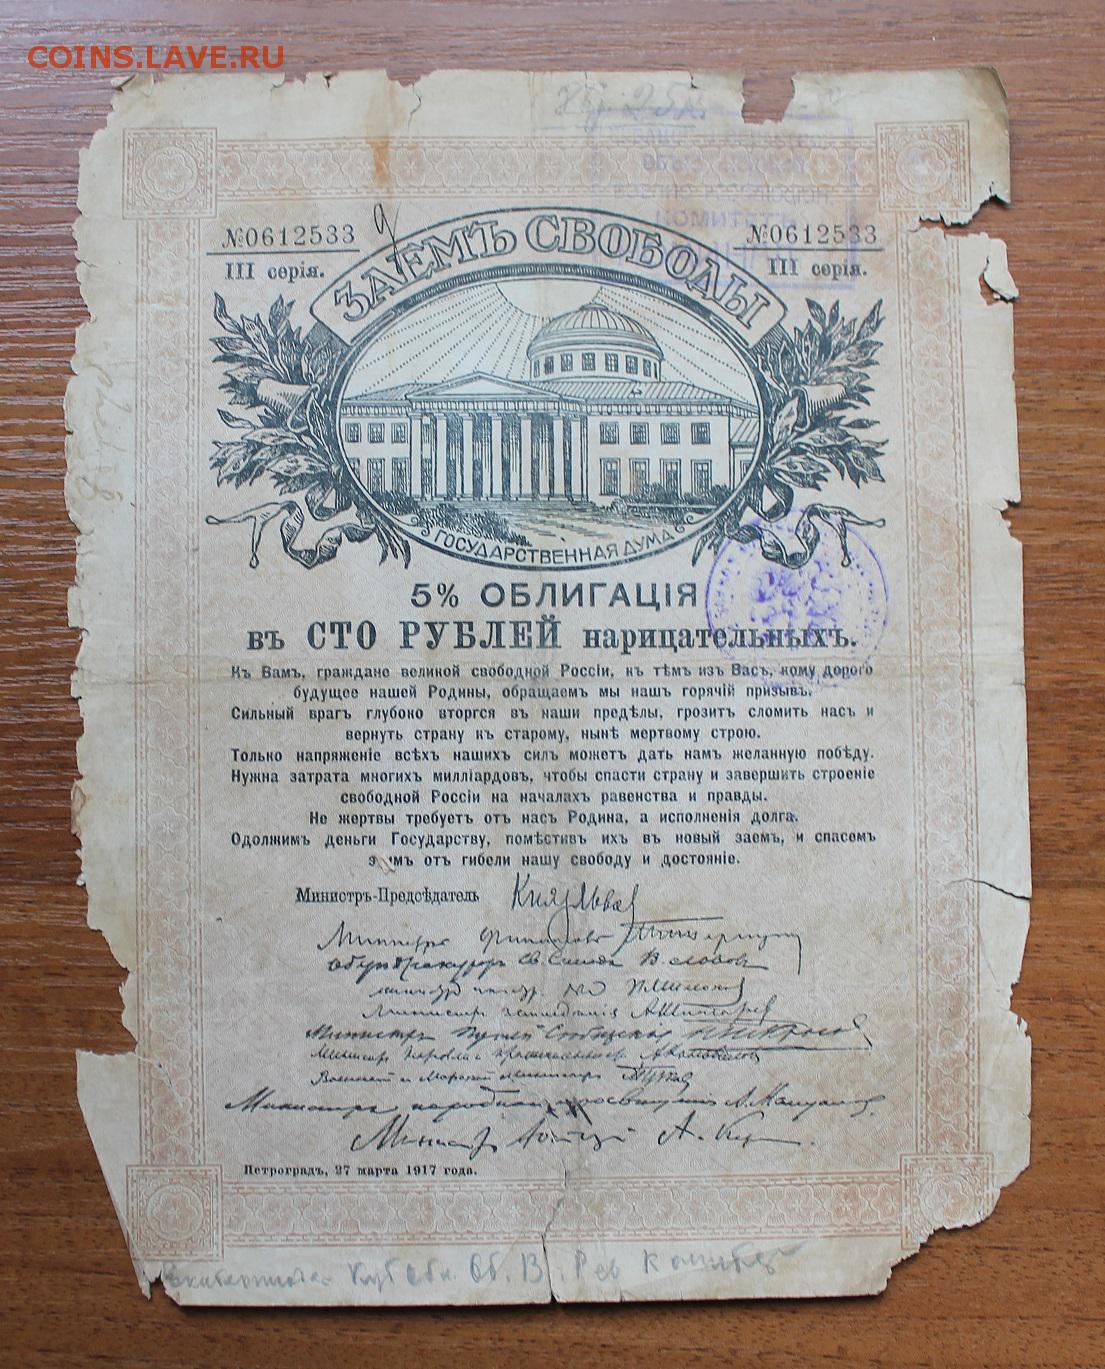 COINS.LAVE.RU
№0612533
№0612533
III серія.
III серія.
ЗАЕМЪ СВОБОДЫ
ГОСУДАРСТВЕННАЯ ДУМА
5% ОБЛИГАЦІЯ
въ СТО РУБЛЕЙ нарицательныхъ.
Къ Вамъ, граждане великой свободной Россіи, къ тѣмъ изъ Васъ, кому дорого
будущее нашей Родины, обращаемъ мы нашъ горячій призывъ.
Сильный врагъ глубоко вторгся въ наши предѣлы, грозитъ сломить насъ и
вернуть страну къ старому, нынѣ мертвому строю.
Только напряженіе всѣхъ нашихъ силъ можетъ дать намъ желанную побѣду.
Нужна затрата многихъ милліардовъ, чтобы спасти страну и завершить строеніе
свободной Россіи на началахъ равенства и правды.
Не жертвы требуетъ отъ насъ Родина, а исполненія долга.
Одолжимъ деньги Государству, помѣстивъ ихъ въ новый заемъ, и спасемъ
этимъ отъ гибели нашу свободу и достояніе.
Министръ-Предсѣдатель Князь Львов
Министръ финансовъ
Обер-Прокурор Св. Синода В. Львов
Министр
Министр земледѣлія А. Шингарев
Министръ Путей Сообщения
Министр
Военный и Морской министръ
Министръ народнаго просвѣщенія А. Мануйлов
Министр А. Кер
Петроградъ, 27 марта 1917 года.